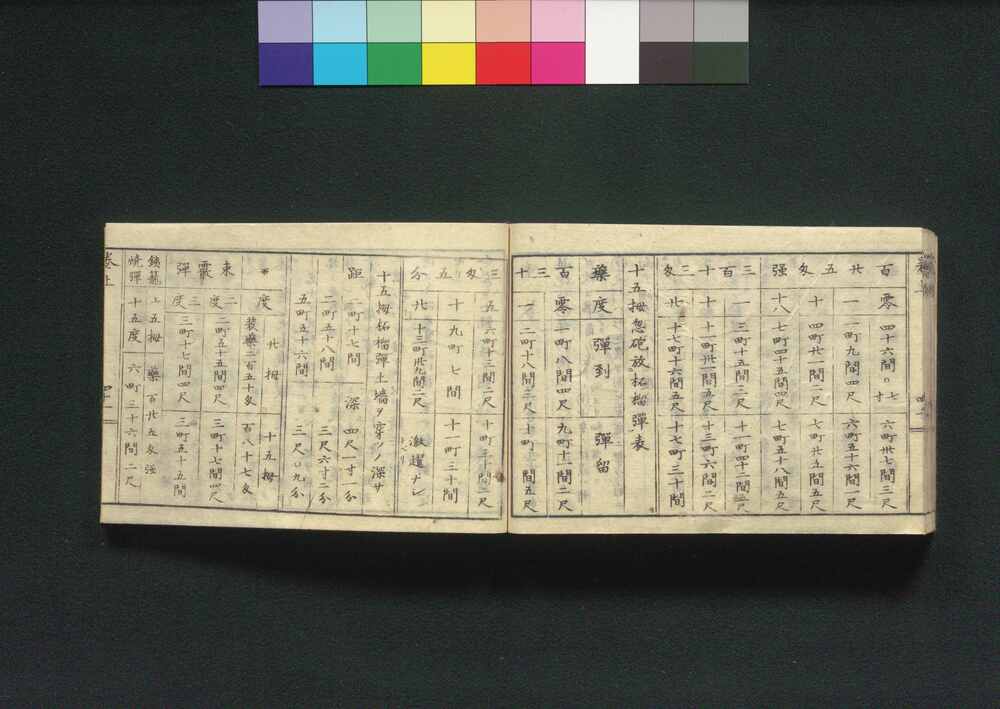 百 零 四十六間〇七寸 六町卅七間三尺
廿 一 一町九間四尺 六町五十六間一尺
五 十 四町廿一間二尺 七町廿五間五尺
匁
强 十八 七町四十五間四尺 七町五十八間五尺
三 一 三町十五間二尺 十一町四十二間三尺
百
十 十 十町卅一間五尺 十三町六間二尺
三
匁 廿 十七町十六間五尺 十七町三十間
十五拇忽砲放柘榴彈表
藥 度 彈到 彈留
百 零 一町八間四尺 九町十一間二尺
三
十 一 二町十八間三尺 十町 間五尺
三 五 六町十三間二尺
匁
五 十 九町七間 十一町三十間
分 廿 十三町卅九間二尺 激躍ナシ
十五拇柘榴彈土墻ヲ穿ノ深サ
距 一町十七間 深 四尺一寸一分
二町五十八間 三尺六寸二分
五町五十六間 三尺〇九分
度 廿拇 十五拇
装藥二百五十匁 百八十七匁
東 二度 二町五十五間四尺 三町十七間四尺
霰
彈 三度 三町十七間四尺 三町五十五間
鉄籠 十五拇 藥 百廿五匁强
燒彈 十五度 六町三十六間二尺